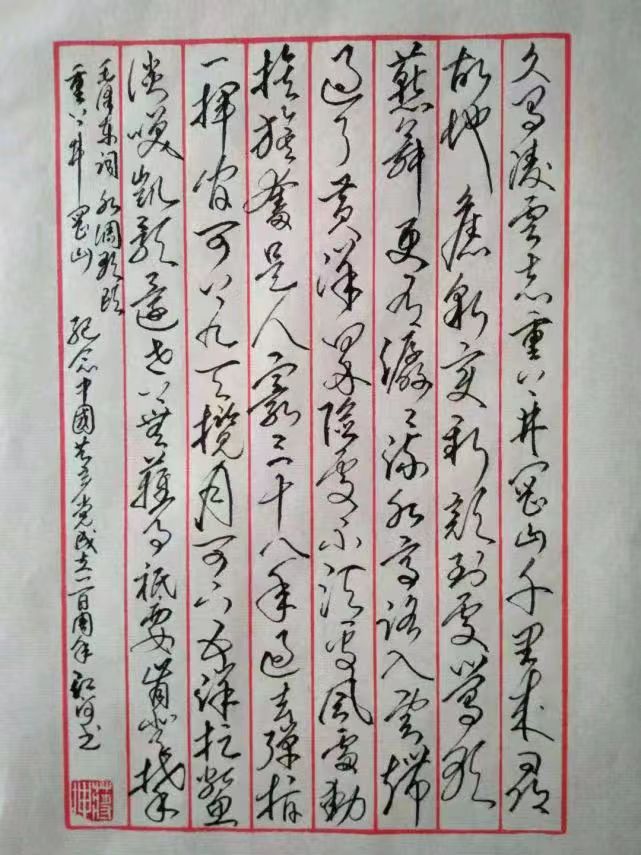 久有凌雲志重上井岡山千里来尋
故地舊貌变新颜到處鶯歌
燕舞更有潺々流水高路入雲端
過了黄洋界險處不须看風雷動
旌旗奮是人寰三十八年過去弹指
一揮间可上九天攬月可下五洋捉鳖
谈笑凯歌還世上無難事祇要肯登攀
毛泽东词水调歌头
重上井岡山 纪念中國共产党成立一百周年